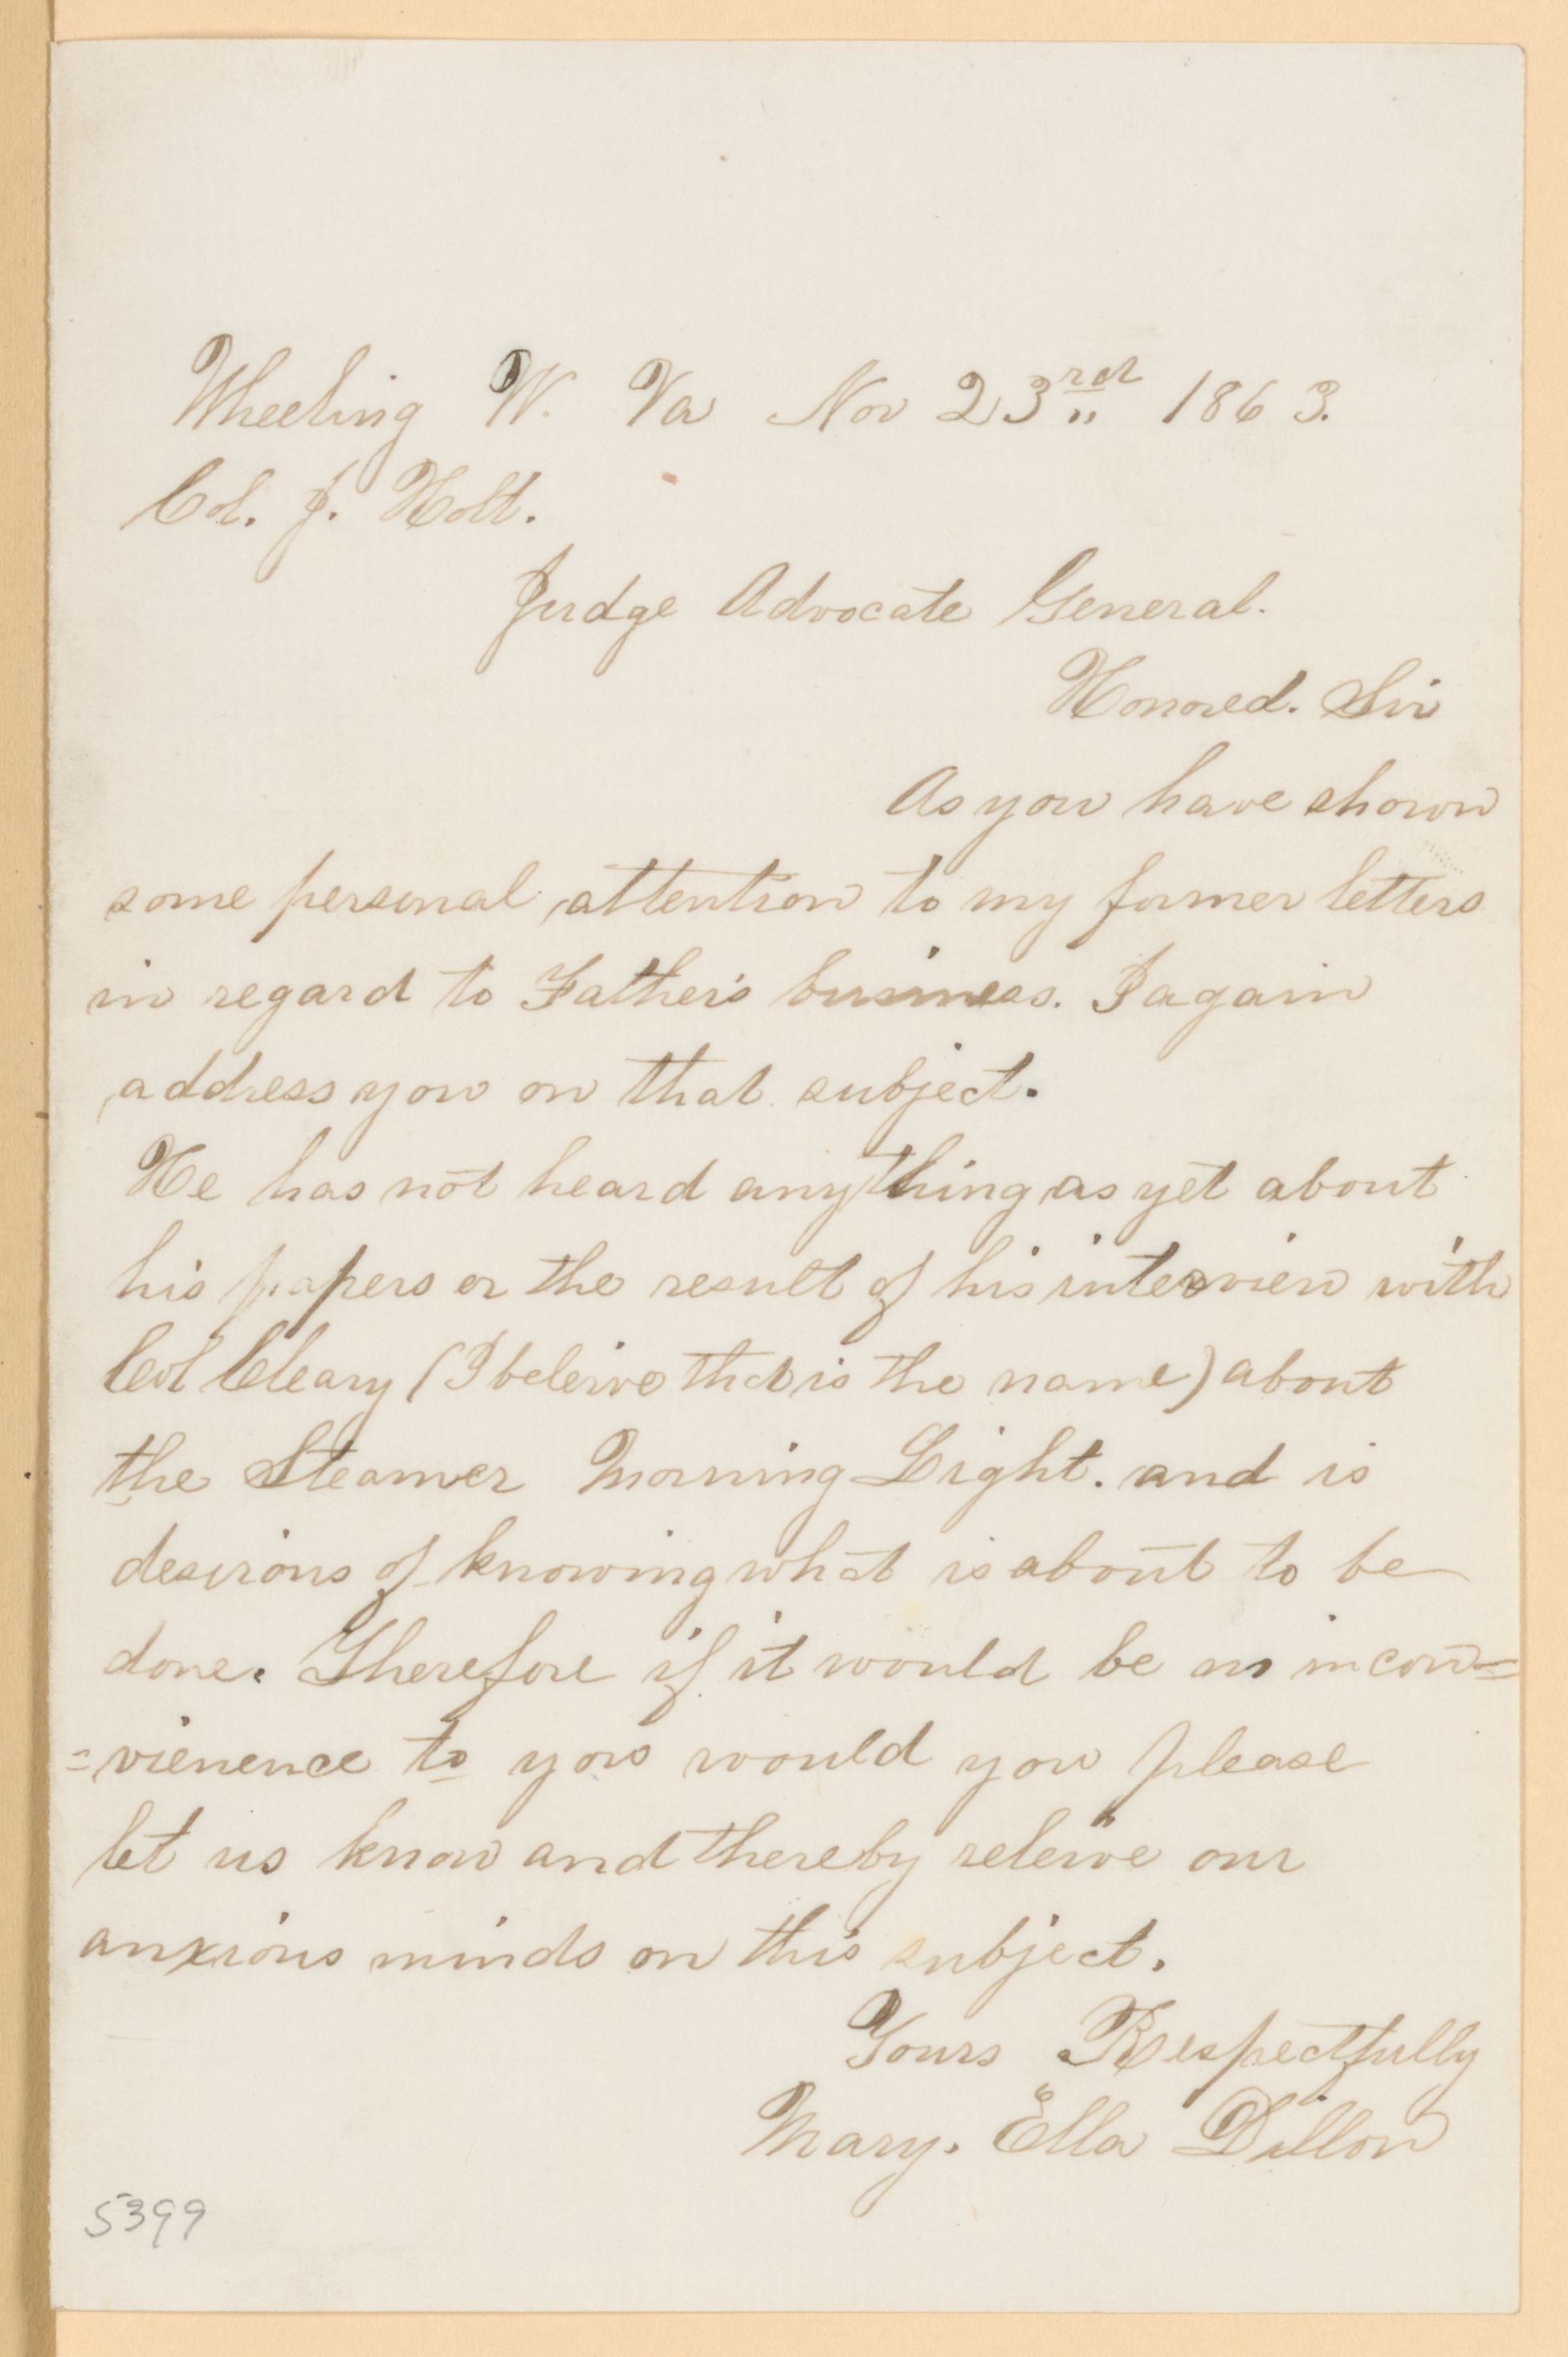 Wheeling W. Va Nov 23rd 1863.
Col. J. Holt.
Judge Advocate General.
Honored. Sir
As you have shown
some personal attention to my former letters
in regard to Father's business. I again
address you on that subject.
He has not heard anything as yet about
his papers or the result of his interview with
Col Cleary (I beleive that is the name) about
the Steamer Morning Light. and is
desirous of knowing what is about to be
done. Therefore if it would be no incon=
=vienence to you would you please
let us know and thereby releive our
anxious minds on this subject.
Yours Respectfully
Mary. Ella Dillon
5399